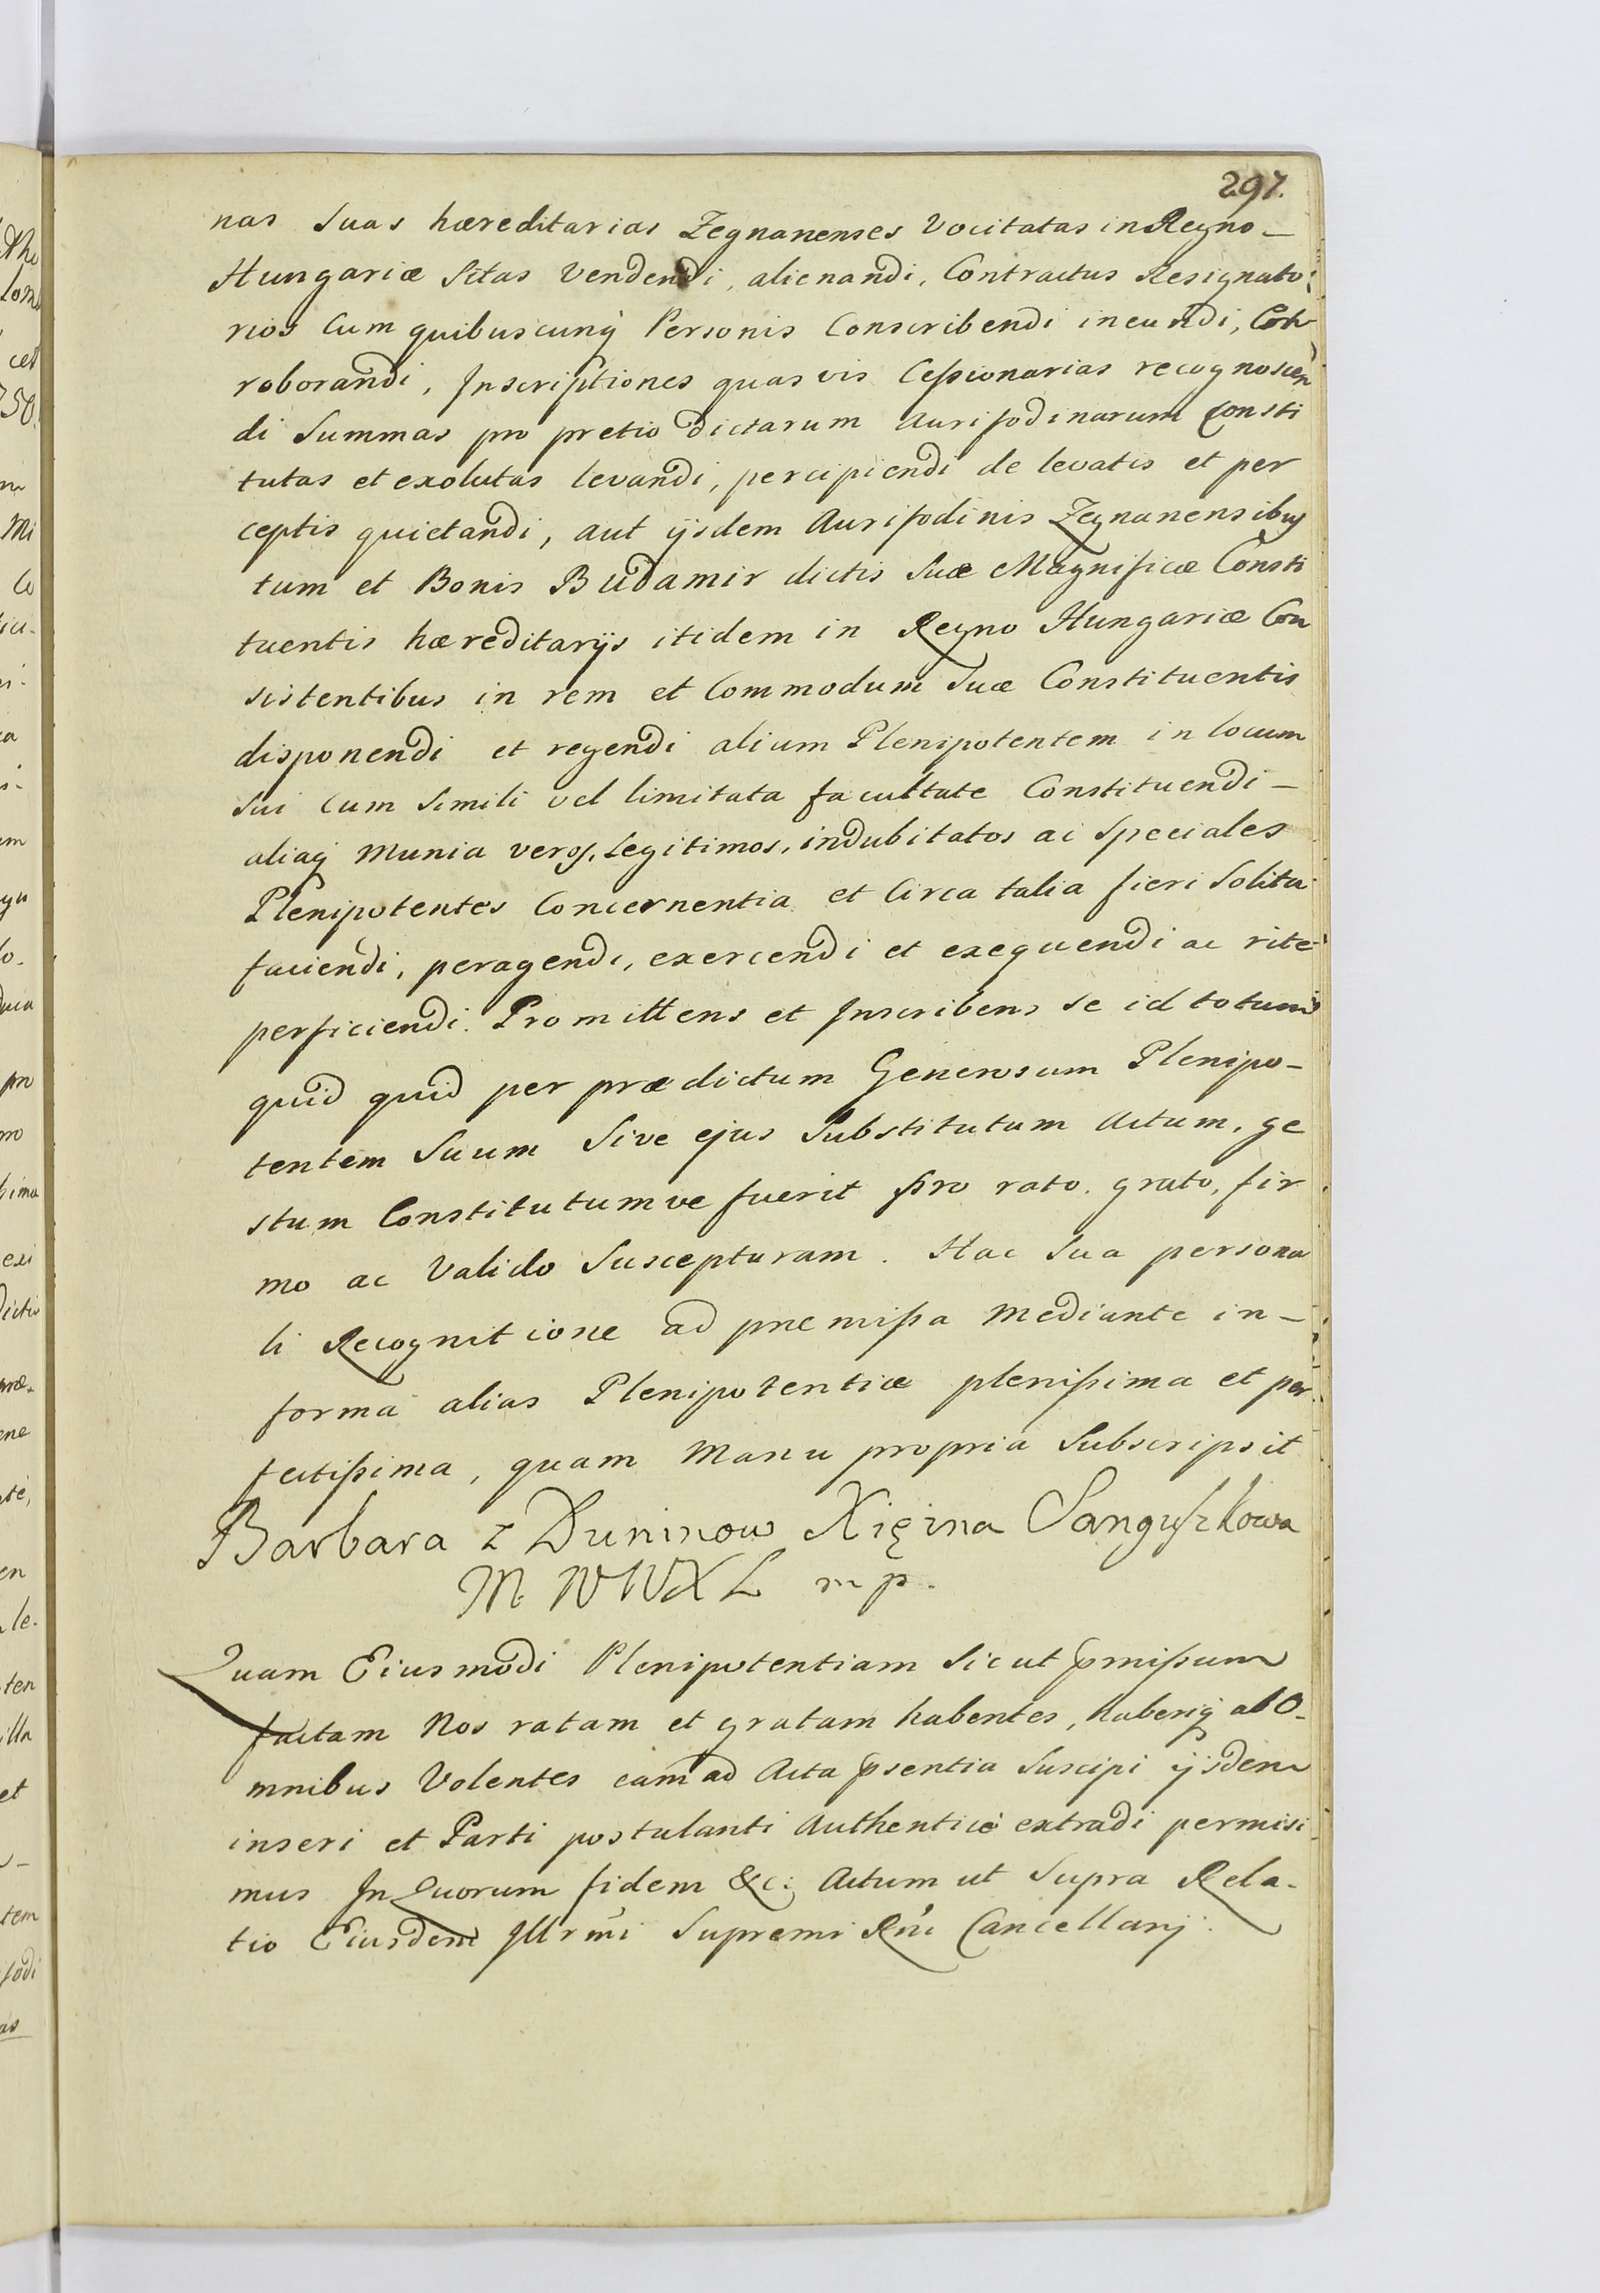 297.
nas Suas hæreditarias Zegnanenses Vocitatas in Regno–
Hungariæ Sitas Vendendi, alienandi, Contractus Resignato:
rios Cum quibuscunq Personis Conscribendi ineundi, Cor
roborandi, Inscriptiones quasvis Cessionarias recognoscen
di Summas pro pretio dictarum Aurifodinarum Consti
tutas et exolutas levandi, percipiendi de levatis et per
ceptis quietandi, aut ijsdem Aurifodinis Zegnanensibus
tum et Bonis Budamir dictis Suæ Magnificæ Consti
tuentis hæreditarijs itidem in Regno Hungariæ Con
sistentibus in rem et Commodum Suæ Constituentis
disponendi et regendi alium Plenipotentem in locum
Sui Cum Simili vel limitata facultate Constituendi–
aliaq Munia veros, Legitimos, indubitatos ac Speciales
Plenipotentes Concernentia et Circa talia fieri Solita
faciendi, peragendi, exercendi et exequendi ac rite
perficiendi. Promittens et Inscribens se id totum
quid quid per prædictum Generosum Plenipo–
tentem Suum Sive ejus Substitutum Actum, ge
stum Constitutumve fuerit pro rato, grato, fir
mo ac Valido Suscepturam. Hac Sua persona
li Recognitione ad præmissa Mediante in–
forma alias Plenipotentiæ plenissima et per
fectissima, quam Manu propria Subscripsit
Barbara z Duninow Xięzna Sanguszkowa
M. W W X L mp.
Quam Eiusmodi Plenipotentiam Sicut pmissum
factam Nos ratam et gratam habentes, haberiq ab O–
mnibus Volentes eam ad Acta psentia Suscipi ijsdem
inseri et Parti postulanti Authenticè extradi permisi
mus In Quorum fidem &c: Actum ut Supra Rela–
tio Eiusdem Illrmi Supremi Rni Cancellarij.